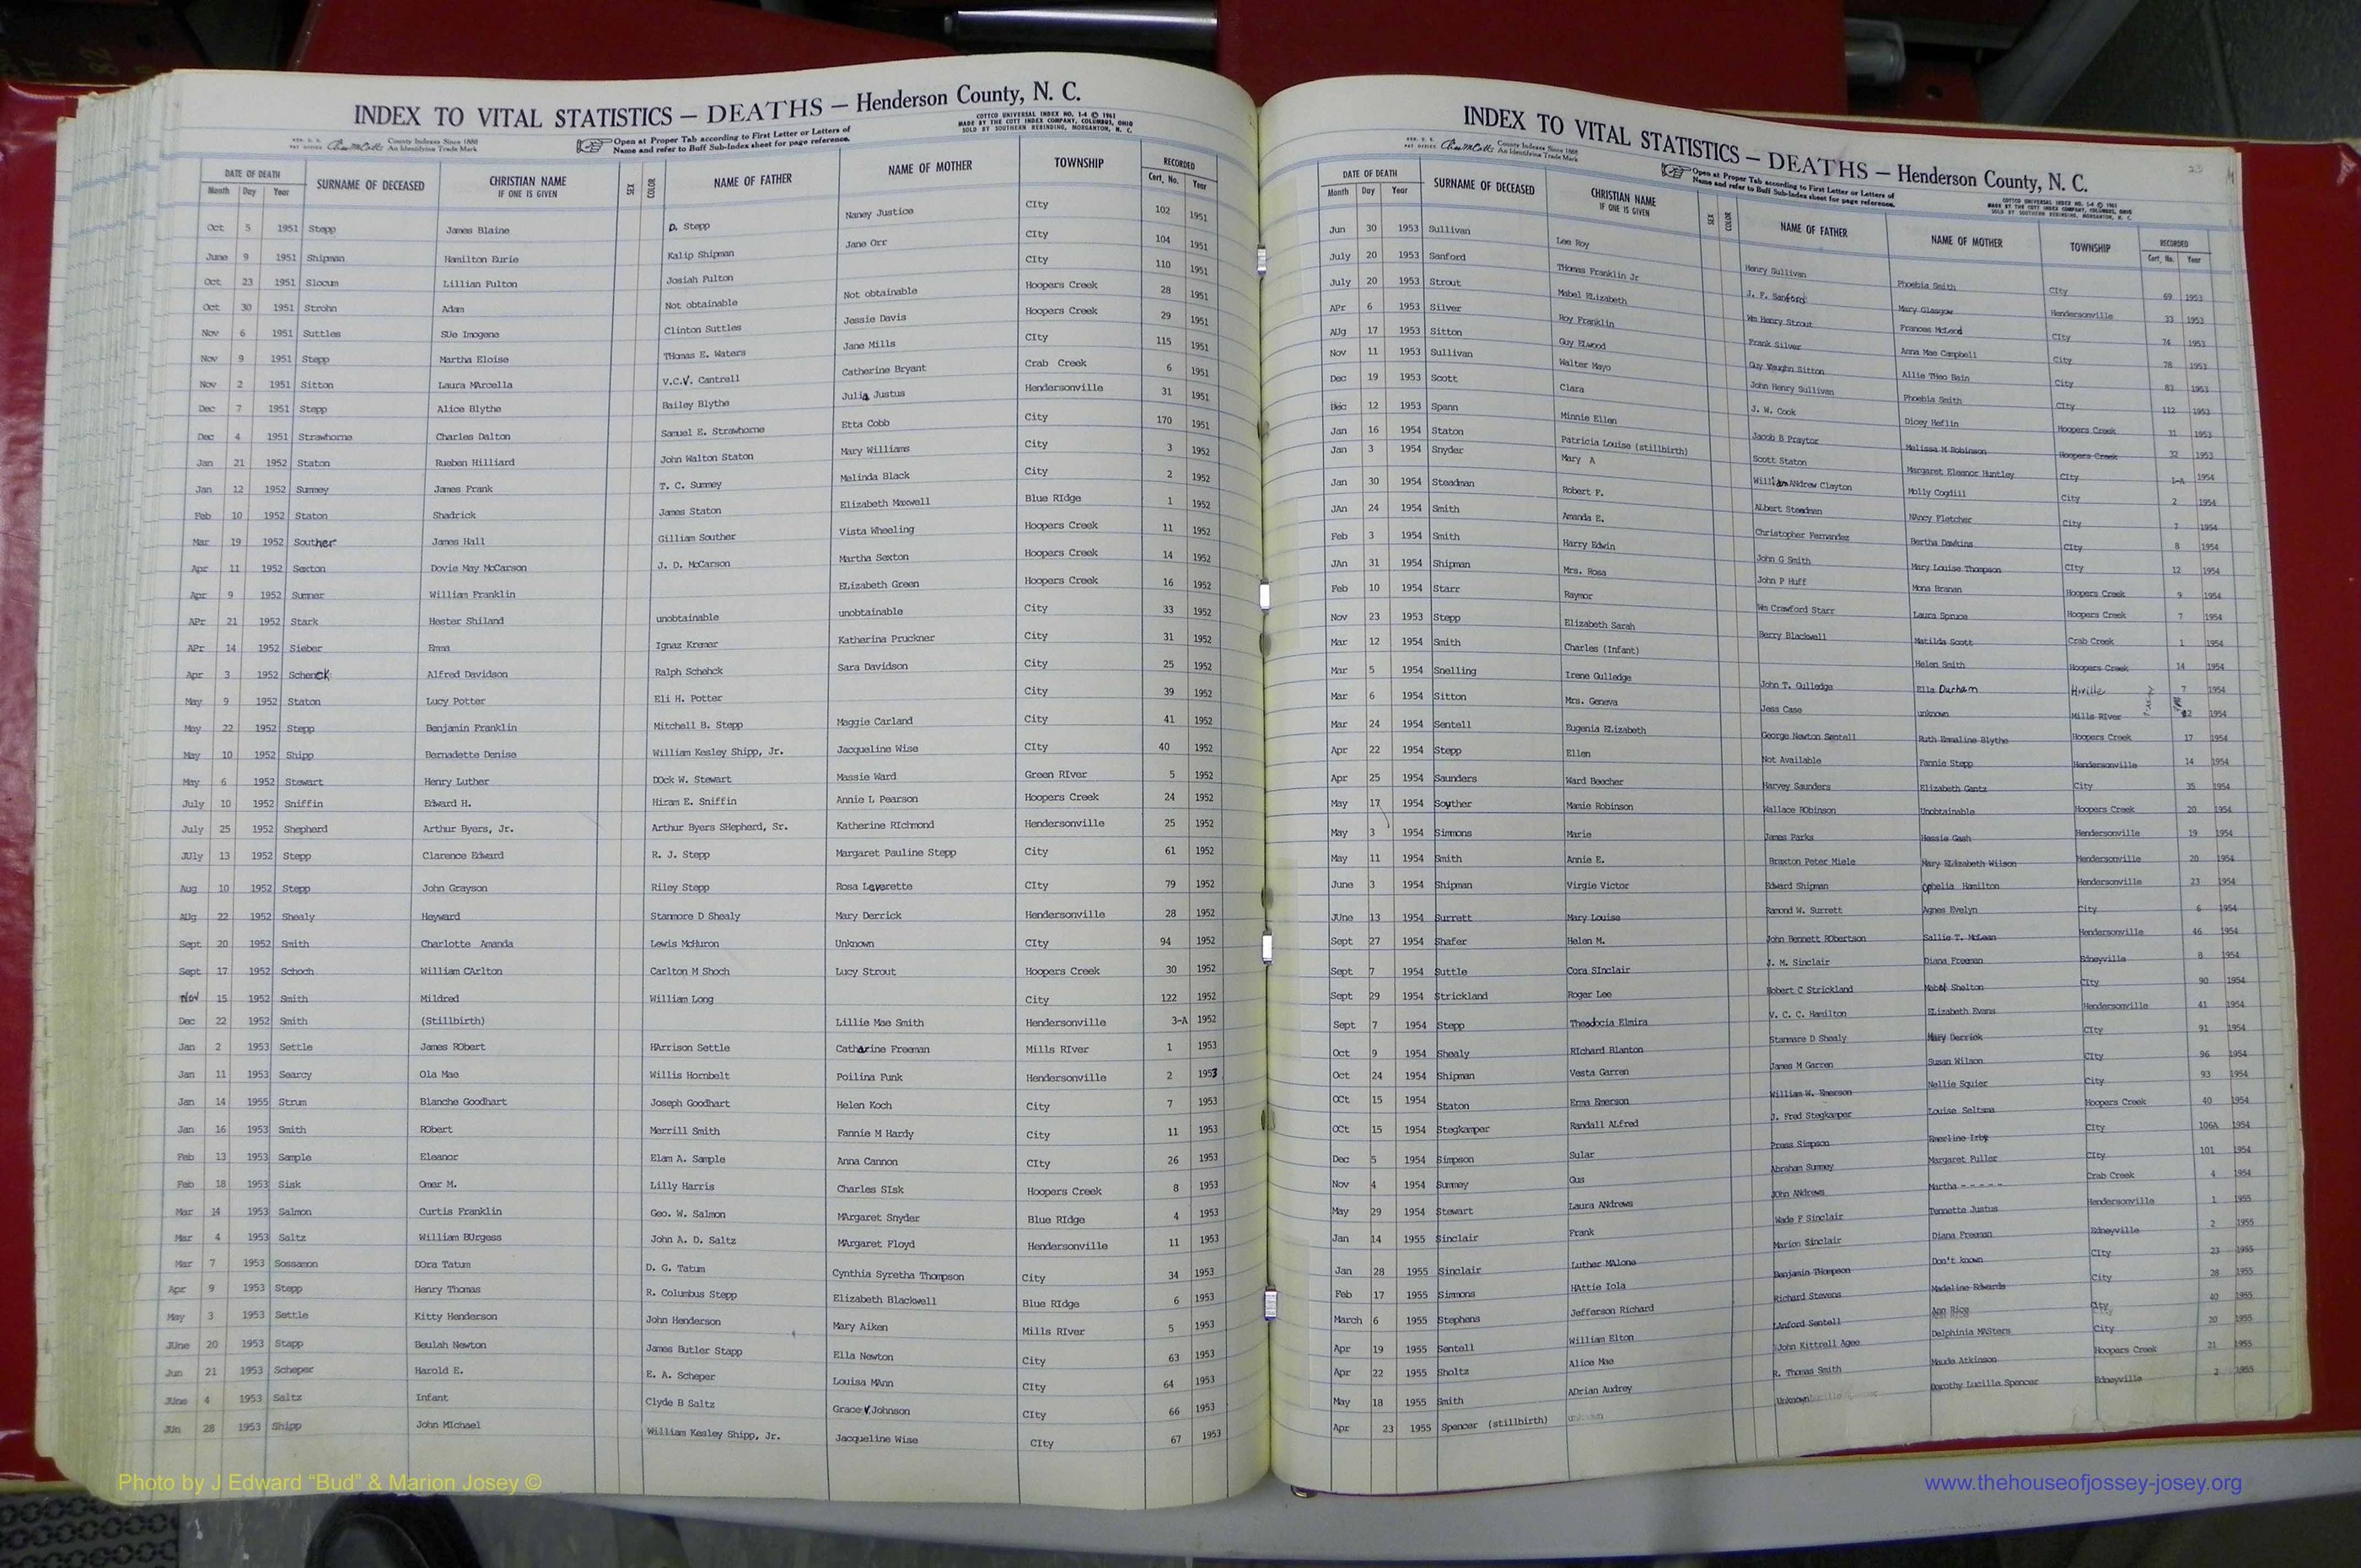 INDEX TO VITAL STATISTICS — DEATHS — Henderson County, N. C.
COTTCO UNIVERSAL INDEX NO. 1-4 © 1961
MADE BY THE COTT INDEX COMPANY, COLUMBUS, OHIO
SOLD BY SOUTHERN REBINDING, MORGANTON, N. C.
County Indexes Since 1888
An Identifying Trade Mark
Open at Proper Tab according to First Letter or Letters of
Name and refer to Buff Sub-Index sheet for page reference.
DATE OF DEATH SURNAME OF DECEASED CHRISTIAN NAME IF ONE IS GIVEN SEX COLOR NAME OF FATHER NAME OF MOTHER TOWNSHIP RECORDED
Month Day Year Cert. No. Year
Oct 5 1951 Stepp James Blaine D. Stepp Nancy Justice CIty 102 1951
June 9 1951 Shipman Hamilton Eurie Kalip Shipman Jane Orr CIty 104 1951
Oct 23 1951 Slocum Lillian Fulton Josiah Fulton CIty 110 1951
Oct 30 1951 Strohn Adam Not obtainable Not obtainable Hoopers Creek 28 1951
Nov 6 1951 Suttles SUe Imogene Clinton Suttles Jessie Davis Hoopers Creek 29 1951
Nov 9 1951 Stepp Martha Eloise THomas E. Waters Jane Mills CIty 115 1951
Nov 2 1951 Sitton Laura MArcella V.C.V. Cantrell Catherine Bryant Crab Creek 6 1951
Dec 7 1951 Stepp Alice Blythe Bailey Blythe Julia Justus Hendersonville 31 1951
Dec 4 1951 Strawhorne Charles Dalton Samuel E. Strawhorne Etta Cobb City 170 1951
Jan 21 1952 Staton Rueben Hilliard John Walton Staton Mary Williams City 3 1952
Jan 12 1952 Summey James Frank T. C. Summey Melinda Black City 2 1952
Feb 10 1952 Staton Shadrick James Staton Elizabeth Maxwell Blue RIdge 1 1952
Mar 19 1952 Souther James Hall Gilliam Souther Vista Wheeling Hoopers Creek 11 1952
Apr 11 1952 Sexton Dovie May McCarson J. D. McCarson Martha Sexton Hoopers Creek 14 1952
Apr 9 1952 Sumner William Franklin ELizabeth Green Hoopers Creek 16 1952
APr 21 1952 Stark Hester Shiland unobtainable unobtainable City 33 1952
APr 14 1952 Sieber Emma Ignaz Kremer Katherina Pruckner City 31 1952
Apr 3 1952 Schenck Alfred Davidson Ralph Schehck Sara Davidson City 25 1952
May 9 1952 Staton Lucy Potter Eli H. Potter City 39 1952
May 22 1952 Stepp Benjamin Franklin Mitchell B. Stepp Maggie Carland City 41 1952
May 10 1952 Shipp Bernadette Denise William Kesley Shipp, Jr. Jacqueline Wise CIty 40 1952
May 6 1952 Stewart Henry Luther DOck W. Stewart Massie Ward Green RIver 5 1952
July 10 1952 Sniffin Edward H. Hiram E. Sniffin Annie L Pearson Hoopers Creek 24 1952
July 25 1952 Shepherd Arthur Byers, Jr. Arthur Byers SHepherd, Sr. Katherine RIchmond Hendersonville 25 1952
JUly 13 1952 Stepp Clarence Edward R. J. Stepp Margaret Pauline Stepp City 61 1952
Aug 10 1952 Stepp John Grayson Riley Stepp Rosa Leverette CIty 79 1952
AUg 22 1952 Shealy Heyward Stanmore D Shealy Mary Derrick Hendersonville 28 1952
Sept 20 1952 Smith Charlotte Amanda Lewis McHuron Unknown CIty 94 1952
Sept 17 1952 Schoch William CArlton Carlton M Shoch Lucy Strout Hoopers Creek 30 1952
Nov 15 1952 Smith Mildred William Long City 122 1952
Dec 22 1952 Smith (Stillbirth) Lillie Mae Smith Hendersonville 3-A 1952
Jan 2 1953 Settle James RObert HArrison Settle Catharine Freeman Mills RIver 1 1953
Jan 11 1953 Searcy Ola Mae Willis Hornbelt Poilina Funk Hendersonville 2 1953
Jan 14 1955 Strum Blanche Goodhart Joseph Goodhart Helen Koch City 7 1953
Jan 16 1953 Smith RObert Merrill Smith Fannie M Hardy City 11 1953
Feb 13 1953 Sample Eleanor Elam A. Sample Anna Cannon CIty 26 1953
Feb 18 1953 Sisk Omer M. Lilly Harris Charles SIsk Hoopers Creek 8 1953
Mar 14 1953 Salmon Curtis Franklin Geo. W. Salmon MArgaret Snyder Blue RIdge 4 1953
Mar 4 1953 Saltz William BUrgess John A. D. Saltz MArgaret Floyd Hendersonville 11 1953
Mar 7 1953 Sossamon DOra Tatum D. G. Tatum Cynthia Syretha Thompson City 34 1953
Apr 9 1953 Stepp Henry Thomas R. Columbus Stepp Elizabeth Blackwell Blue RIdge 6 1953
May 3 1953 Settle Kitty Henderson John Henderson Mary Aiken Mills RIver 5 1953
JUne 20 1953 Stapp Beulah Newton James Butler Stapp Ella Newton City 63 1953
Jun 21 1953 Scheper Harold E. E. A. Scheper Louisa MAnn CIty 64 1953
JUne 4 1953 Saltz Infant Clyde B Saltz Grace V Johnson CIty 66 1953
JUn 28 1953 Shipp John MIchael William Kesley Shipp, Jr. Jacqueline Wise CIty 67 1953
INDEX TO VITAL STATISTICS — DEATHS — Henderson County, N. C.
23
County Indexes Since 1888
An Identifying Trade Mark
Open at Proper Tab according to First Letter or Letters of
Name and refer to Buff Sub-Index sheet for page reference.
COTTCO UNIVERSAL INDEX NO. 1-4 © 1961
MADE BY THE COTT INDEX COMPANY, COLUMBUS, OHIO
SOLD BY SOUTHERN REBINDING, MORGANTON, N. C.
DATE OF DEATH SURNAME OF DECEASED CHRISTIAN NAME IF ONE IS GIVEN SEX COLOR NAME OF FATHER NAME OF MOTHER TOWNSHIP RECORDED
Month Day Year Cert. No. Year
Jun 30 1953 Sullivan Lee Roy Henry Sullivan Phoebia Smith CIty 69 1953
July 20 1953 Sanford THomas Franklin Jr J. F. Sanford Mary Glasgow Hendersonville 33 1953
July 20 1953 Strout Mabel ELizabeth Wm Henry Strout Frances McLeod CIty 74 1953
APr 6 1953 Silver Roy Franklin Frank Silver Anna Mae Campbell City 78 1953
AUg 17 1953 Sitton Guy ELwood Guy Vaughn Sitton Allie THeo Bain City 83 1953
Nov 11 1953 Sullivan Walter Mayo John Henry Sullivan Phoebia Smith CIty 112 1953
Dec 19 1953 Scott Clara J. W. Cook Dicey Heflin Hoopers Creek 31 1953
Dec 12 1953 Spann Minnie Ellen Jacob B Praytor Melissa M Robinson Hoopers Creek 32 1953
Jan 16 1954 Staton Patricia Louise (stillbirth) Scott Staton Margaret Eleanor Huntley CIty 1-A 1954
Jan 3 1954 Snyder Mary A William ANdrew Clayton Molly Cogdill City 2 1954
Jan 30 1954 Steadman Robert F. ALbert Steadman NAncy Fletcher City 7 1954
JAn 24 1954 Smith Amanda E. Christopher Fernandez Bertha Dawkins CIty 8 1954
Feb 3 1954 Smith Harry Edwin John G Smith Mary Louise Thompson CIty 12 1954
JAn 31 1954 Shipman Mrs. Rosa John P Huff Mona Branan Hoopers Creek 9 1954
Feb 10 1954 Starr Raymor Wm Crawford Starr Laura Spruce Hoopers Creek 7 1954
Nov 23 1953 Stepp Elizabeth Sarah Berry Blackwell Matilda Scott Crab Creek 1 1954
Mar 12 1954 Smith Charles (Infant) Helen Smith Hoopers Creek 14 1954
Mar 5 1954 Snelling Irene Gulledge John T. Gulledge Ella Durham H'ville 7 1954
Mar 6 1954 Sitton Mrs. Geneva Jess Case unknown Mills RIver 2 1954
Mar 24 1954 Sentell Eugenia ELizabeth George Newton Sentell Ruth Emmaline Blythe Hoopers Creek 17 1954
Apr 22 1954 Stepp Ellen Not Available Fannie Stepp Hendersonville 14 1954
Apr 25 1954 Saunders Ward Beecher Harvey Saunders Elizabeth Gantz City 35 1954
May 17 1954 Souther Mamie Robinson Wallace RObinson Unobtainable Hoopers Creek 20 1954
May 3 1954 Simmons Marie James Parks Hessie Gash Hendersonville 19 1954
May 11 1954 Smith Annie E. Braxton Peter Miele Mary ELizabeth Wilson Hendersonville 20 1954
June 3 1954 Shipman Virgie Victor Edward Shipman Ophelia Hamilton Hendersonville 23 1954
JUne 13 1954 Surrett Mary Louise Ramond W. Surrett Agnes Evelyn City 6 1954
Sept 27 1954 Shafer Helen M. John Bennett RObertson Sallie T. McLean Hendersonville 46 1954
Sept 7 1954 Suttle Cora SInclair J. M. Sinclair Diana Freeman Edneyville 8 1954
Sept 29 1954 Strickland Roger Lee Robert C Strickland Mabel Shelton CIty 90 1954
Sept 7 1954 Stepp Theodocia Elmira V. C. C. Hamilton ELizabeth Evans Hendersonville 41 1954
Oct 9 1954 Shealy RIchard Blanton Stanmare D Shealy Mary Derrick CIty 91 1954
Oct 24 1954 Shipman Vesta Garren James M Garren Susan Wilson CIty 96 1954
OCt 15 1954 Staton Erma Emerson William W. Emerson Nellie Squier City 93 1954
OCt 15 1954 Stegkamper Randall ALfred J. Fred Stegkamper Louise Seltsma Hoopers Creek 40 1954
Dec 5 1954 Simpson Sular Press Simpson Emerline Irby CIty 106A 1954
Nov 4 1954 Summey Gus Abraham Summey Margaret Fuller CIty 101 1954
May 29 1954 Stewart Laura ANdrews JOhn ANdrews Martha - - - - - Crab Creek 4 1954
Jan 14 1955 Sinclair Frank Wade F Sinclair Tennette Justus Hendersonville 1 1955
Jan 28 1955 Sinclair Luther MAlone Marion Sinclair Diana Freeman Edneyville 2 1955
Feb 17 1955 Simmons HAttie Iola Benjamin THompson Don't known CIty 23 1955
March 6 1955 Stephens Jefferson Richard Richard Stevens Madeline Edwards City 28 1955
Apr 19 1955 Sentell William Elton LAnford Sentell Ann Rice City 40 1955
Apr 22 1955 Sholtz Alice Mae John Kittrell Agee Delphinia MASters City 20 1955
May 18 1955 Smith ADrian Audrey R. Thomas Smith Maude Atkinson Hoopers Creek 21 1955
Apr 23 1955 Spencer (stillbirth) unknown Unknown Dorothy Lucille Spencer Edneyville 2 1955
Photo by J Edward “Bud” & Marion Josey ©
www.thehouseofjossey-josey.org